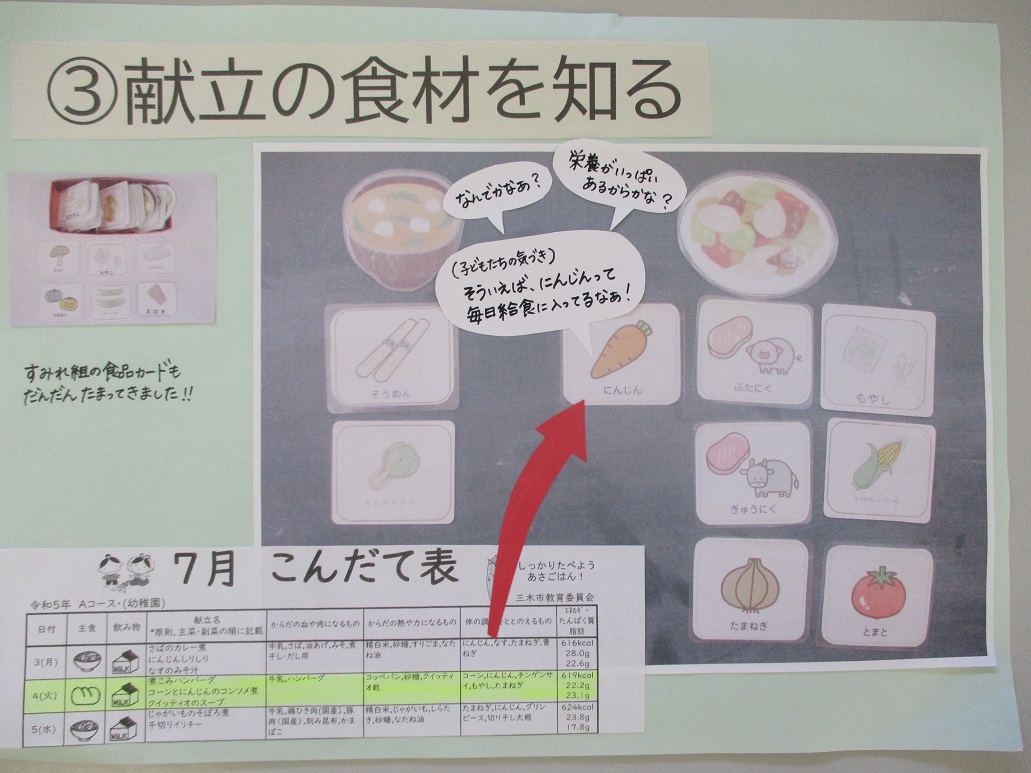 ③献立の食材を知る
なんでかなあ?
栄養がいっぱい
あるからかな?
(子どもたちの気づき)
そういえば、にんじんって
毎日給食に入ってるなぁ!
すみれ組の食品カードも
だんだんたまってきました!!
そうめん
にんじん
ぶたにく
もやし
ぎゅうにく
たまねぎ
とまと
7月 こんだて表
しっかりたべよう
あさごはん!
令和5年 Aコース・(幼稚園)
三木市教育委員会
日付
主食
飲み物
献立名
*原則、主菜・副菜の順に記載
からだの血や肉になるもの
からだの熱や力になるもの
体の調
ととのえるもの
エネルギー
たんぱく質
脂肪
3(月)
MILK
さばのカレー煮
にんじんしりしり
なすのみそ汁
牛乳,さば,油あげ,みそ,煮
干し・だし用
精白米,砂糖,すりごま,なた
ね油
にんじん,なす,たまねぎ,青
ねぎ
616kcal
28.0g
22.6g
4(火)
MILK
煮こみハンバーグ
コーンとにんじんのコンソメ煮
クイッティオのスープ
牛乳,ハンバーグ
コッペパン,砂糖,クイッティ
オ乾
コーン,にんじん,チンゲンサ
イ,もやし,たまねぎ
619kcal
22.2g
23.1g
5(水)
MILK
じゃがいものそぼろ煮
千切りイリチー
牛乳,鶏ひき肉(国産),豚
肉(国産),刻み昆布,かま
ぼこ
精白米,じゃがいも,しらた
き,砂糖,なたね油
たまねぎ,にんじん,グリン
ピース,切り干し大根
624kcal
23.8g
17.8g